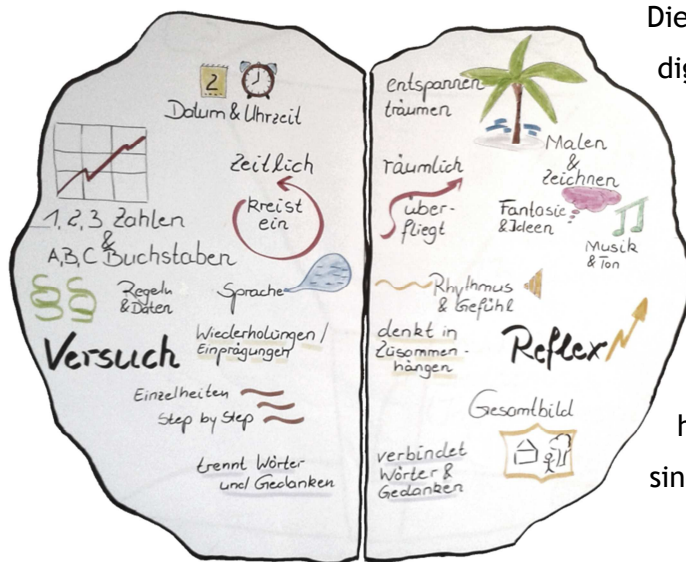 Die
dig
2
Datum & Uhrzeit
zeitlich
kreist
ein
1, 2, 3 Zahlen
&
A, B, C Buchstaben
Regeln
& Daten
Sprache
Versuch
Wiederholungen /
Einprägungen
Einzelheiten
Step by Step
trennt Wörter
und Gedanken
entspannen
träumen
Malen
&
Zeichnen
räumlich
über-
fliegt
Fantasie
& Ideen
Musik
& Ton
Rhythmus
& Gefühl
denkt in
Zusammen-
hängen
Reflex
Gesamtbild
verbindet
Wörter &
Gedanken
h
sin